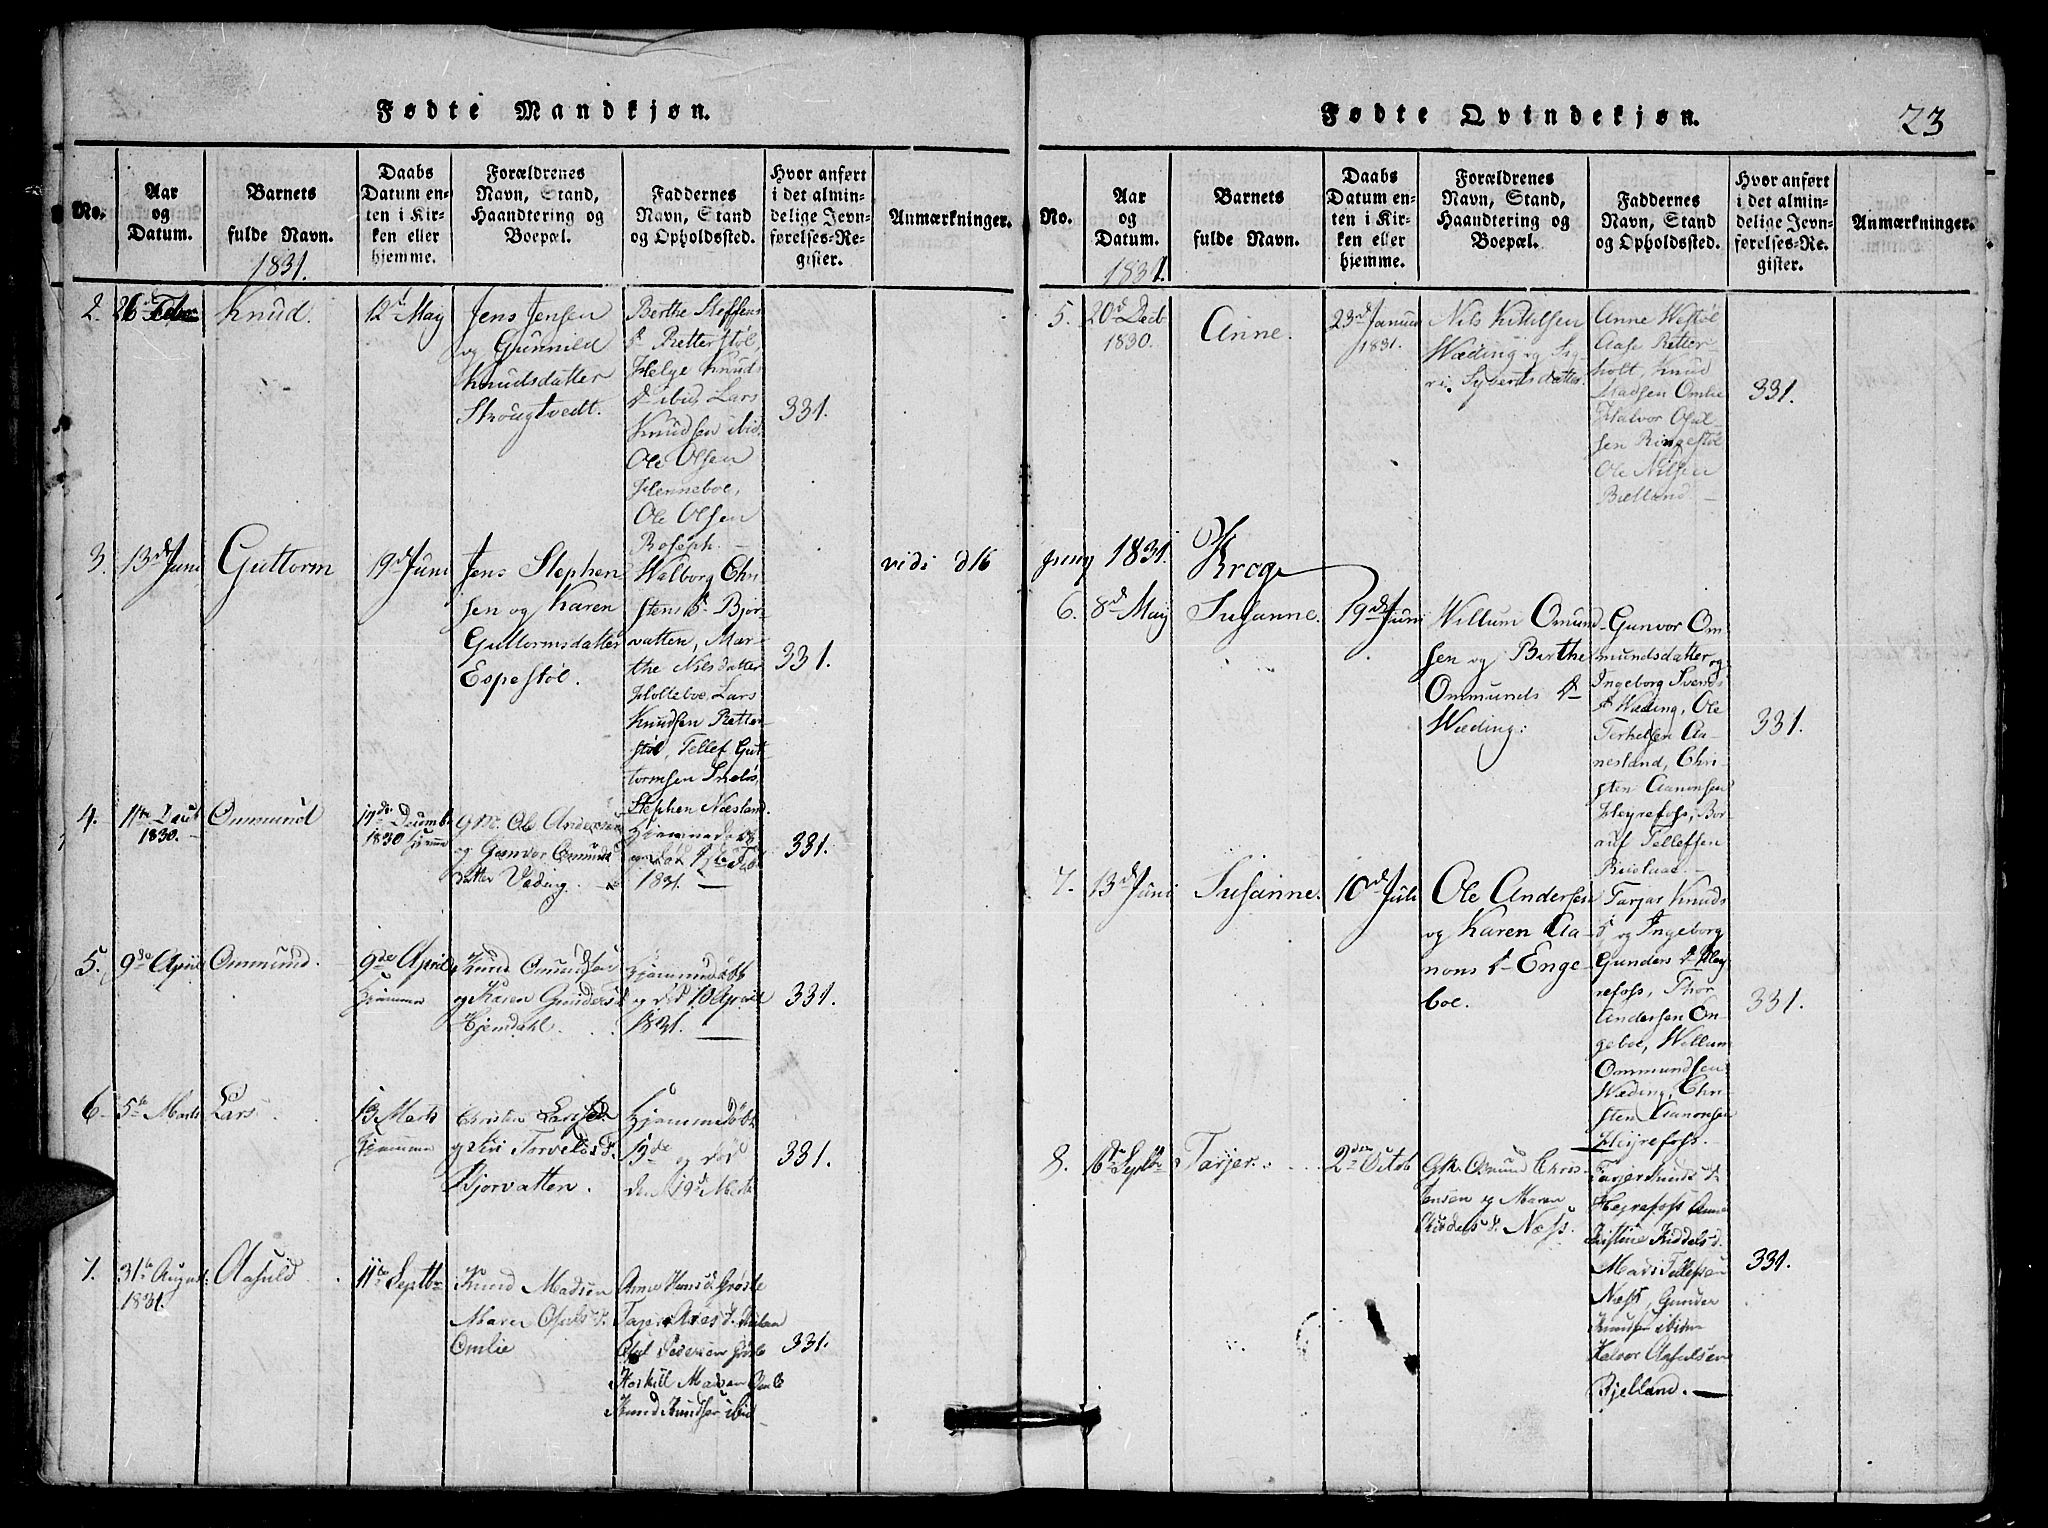 Fødte Mandkjøn.
No.
Aar
og
Datum.
Barnets
fulde Navn.
1831.
Daabs
Datum en-
ten i Kir-
ken eller
hjemme.
Forældrenes
Navn, Stand,
Haandtering og
Boepæl.
Faddernes
Navn, Stand
og Opholdssted.
Hvor anført
i det almin-
delige Jevn-
førelses-Re-
gister.
Anmærkninger.
2.
26 Febr
Knud.
12te May
Jens Jensen
og Gunnild
Knudsdatter
Skougtvedt.
Berthe Steffens
d Retterstøl,
Helge Knuds
d ibid, Lars
Knudsen ibid.
Ole Olsen
Henneboe,
Ole Olsen
Roseph.
331.
3.
13d Juni
Guttorm
19d Juni
Jens Stephen
sen og Karen
Guttormsdatter
Espestøl.
Walborg Chri-
stens d Bjor-
vatten, Mar-
the Nilsdatter
Holleboe, Lars
Knudsen Retter
støl, Tellef Gut
tormsen
Stephen Næsland.
331.
vidi d 16
4.
11te Decb
1830.
Ommund
17de Decemb
1830 hjemme
G.M. Ole Andersen
og Gunvor Omunds
datter Væding.
Hjemmedøbt
og død
1831.
331.
5.
9de April
Ommund.
9de April
hjemme
Knud Omundsen
og Karen Gunders d
Hjemdahl.
hjemmedøbt
og død 10 April
1831.
331.
6.
5te Marts
Lars
13 Marts
hjemme
Christen Larsen
og Siri Torvelds d.
Bjorvatten.
Hjemmedøbt
13de og død
den 19d Marts
331.
7.
31te August
1831.
Aasuld
11te Septbr
Knud Madsen
Maren Osuls d.
Omlie
Anne Hans d.
Osul Pedersen
Madsen
Knud Knudsen ibid
331.
Fødte Qvindekjøn.
23
No.
Aar
og
Datum.
1831.
Barnets
fulde Navn.
Daabs
Datum en-
ten i Kir-
ken eller
hjemme.
Forældrenes
Navn, Stand,
Haandtering og
Boepæl.
Faddernes
Navn, Stand
og Opholdssted.
Hvor anført
i det almin-
delige Jevn-
førelses-Re.
gister.
Anmærkninger.
5.
20d Decb
1830.
Anne.
23d Januar
1831.
Nils Kittelsen
Wæding og Sig-
ri Syvertsdatter
Anne Westøl
Aase Retter-
holt, Knud
Madsen Omlie
Halvor Osul-
sen Ringestøl
Ole Nilsen
Bielland
331.
juny 1831.
Krog
6.
8d May
Susanne.
19d Juni
Willum Omund
sen og Birthe
Ommunds d
Wæding:
Gunvor Om-
mundsdatter og
Ingeborg Svends
d Wæding, Ole
Terkelsen Aa-
nesland, Chri-
sten Aanonsen
Heyrefoss, Bor-
auf Tellefsen
331.
7.
13d Juni
Susanne.
10d Juli
Ole Andersen
og Karen Aa-
nons d Enge-
boe.
Tarjer Knuds
d og Ingeborg
Gunders d Hey
refoss, Thor
Andersen En-
geboe, Willum
Ommundsen
Wæding, Chri-
sten Aanonsen
Heyrefoss.
331.
8.
6te Septbr
Tarjer.
2den Octob
G.M. Omund Chris-
tensen og Maren
Gunders d. Næss.
Tarjer Knuds d.
Heyrefoss Anne
Kistine Kiddels d.
Mads Tellefsen
Næss, Gunder
Knudsen ibidem
Halvor Aasulsen
Bjelland.
331.